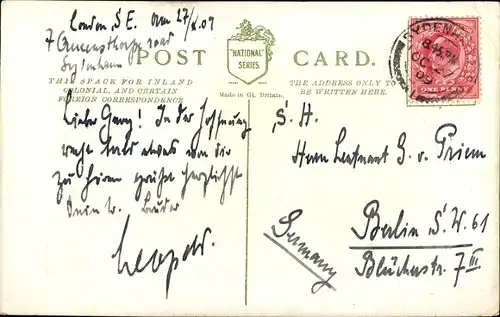 London, S.E. am 27/X.09
7 Queensthorpe road
Sydenham
POST CARD.
"NATIONAL"
SERIES.
THIS SPACE FOR INLAND
COLONIAL, AND CERTAIN
FOREIGN CORRESPONDENCE
Made in Gt. Britain.
THE ADDRESS ONLY TO
BE WRITTEN HERE.
SYDENHAM
8.45 PM
OC 27
09
ONE PENNY
Lieber Georg! In der Hoffnung
recht bald etwas von dir
zu hören grüßt herzlichst
Dein tr. Bruder
Leopold.
S. H.
Herrn Leutnant G. v. Priem
Berlin S.W. 61
Blücherstr. 7 III
Germany